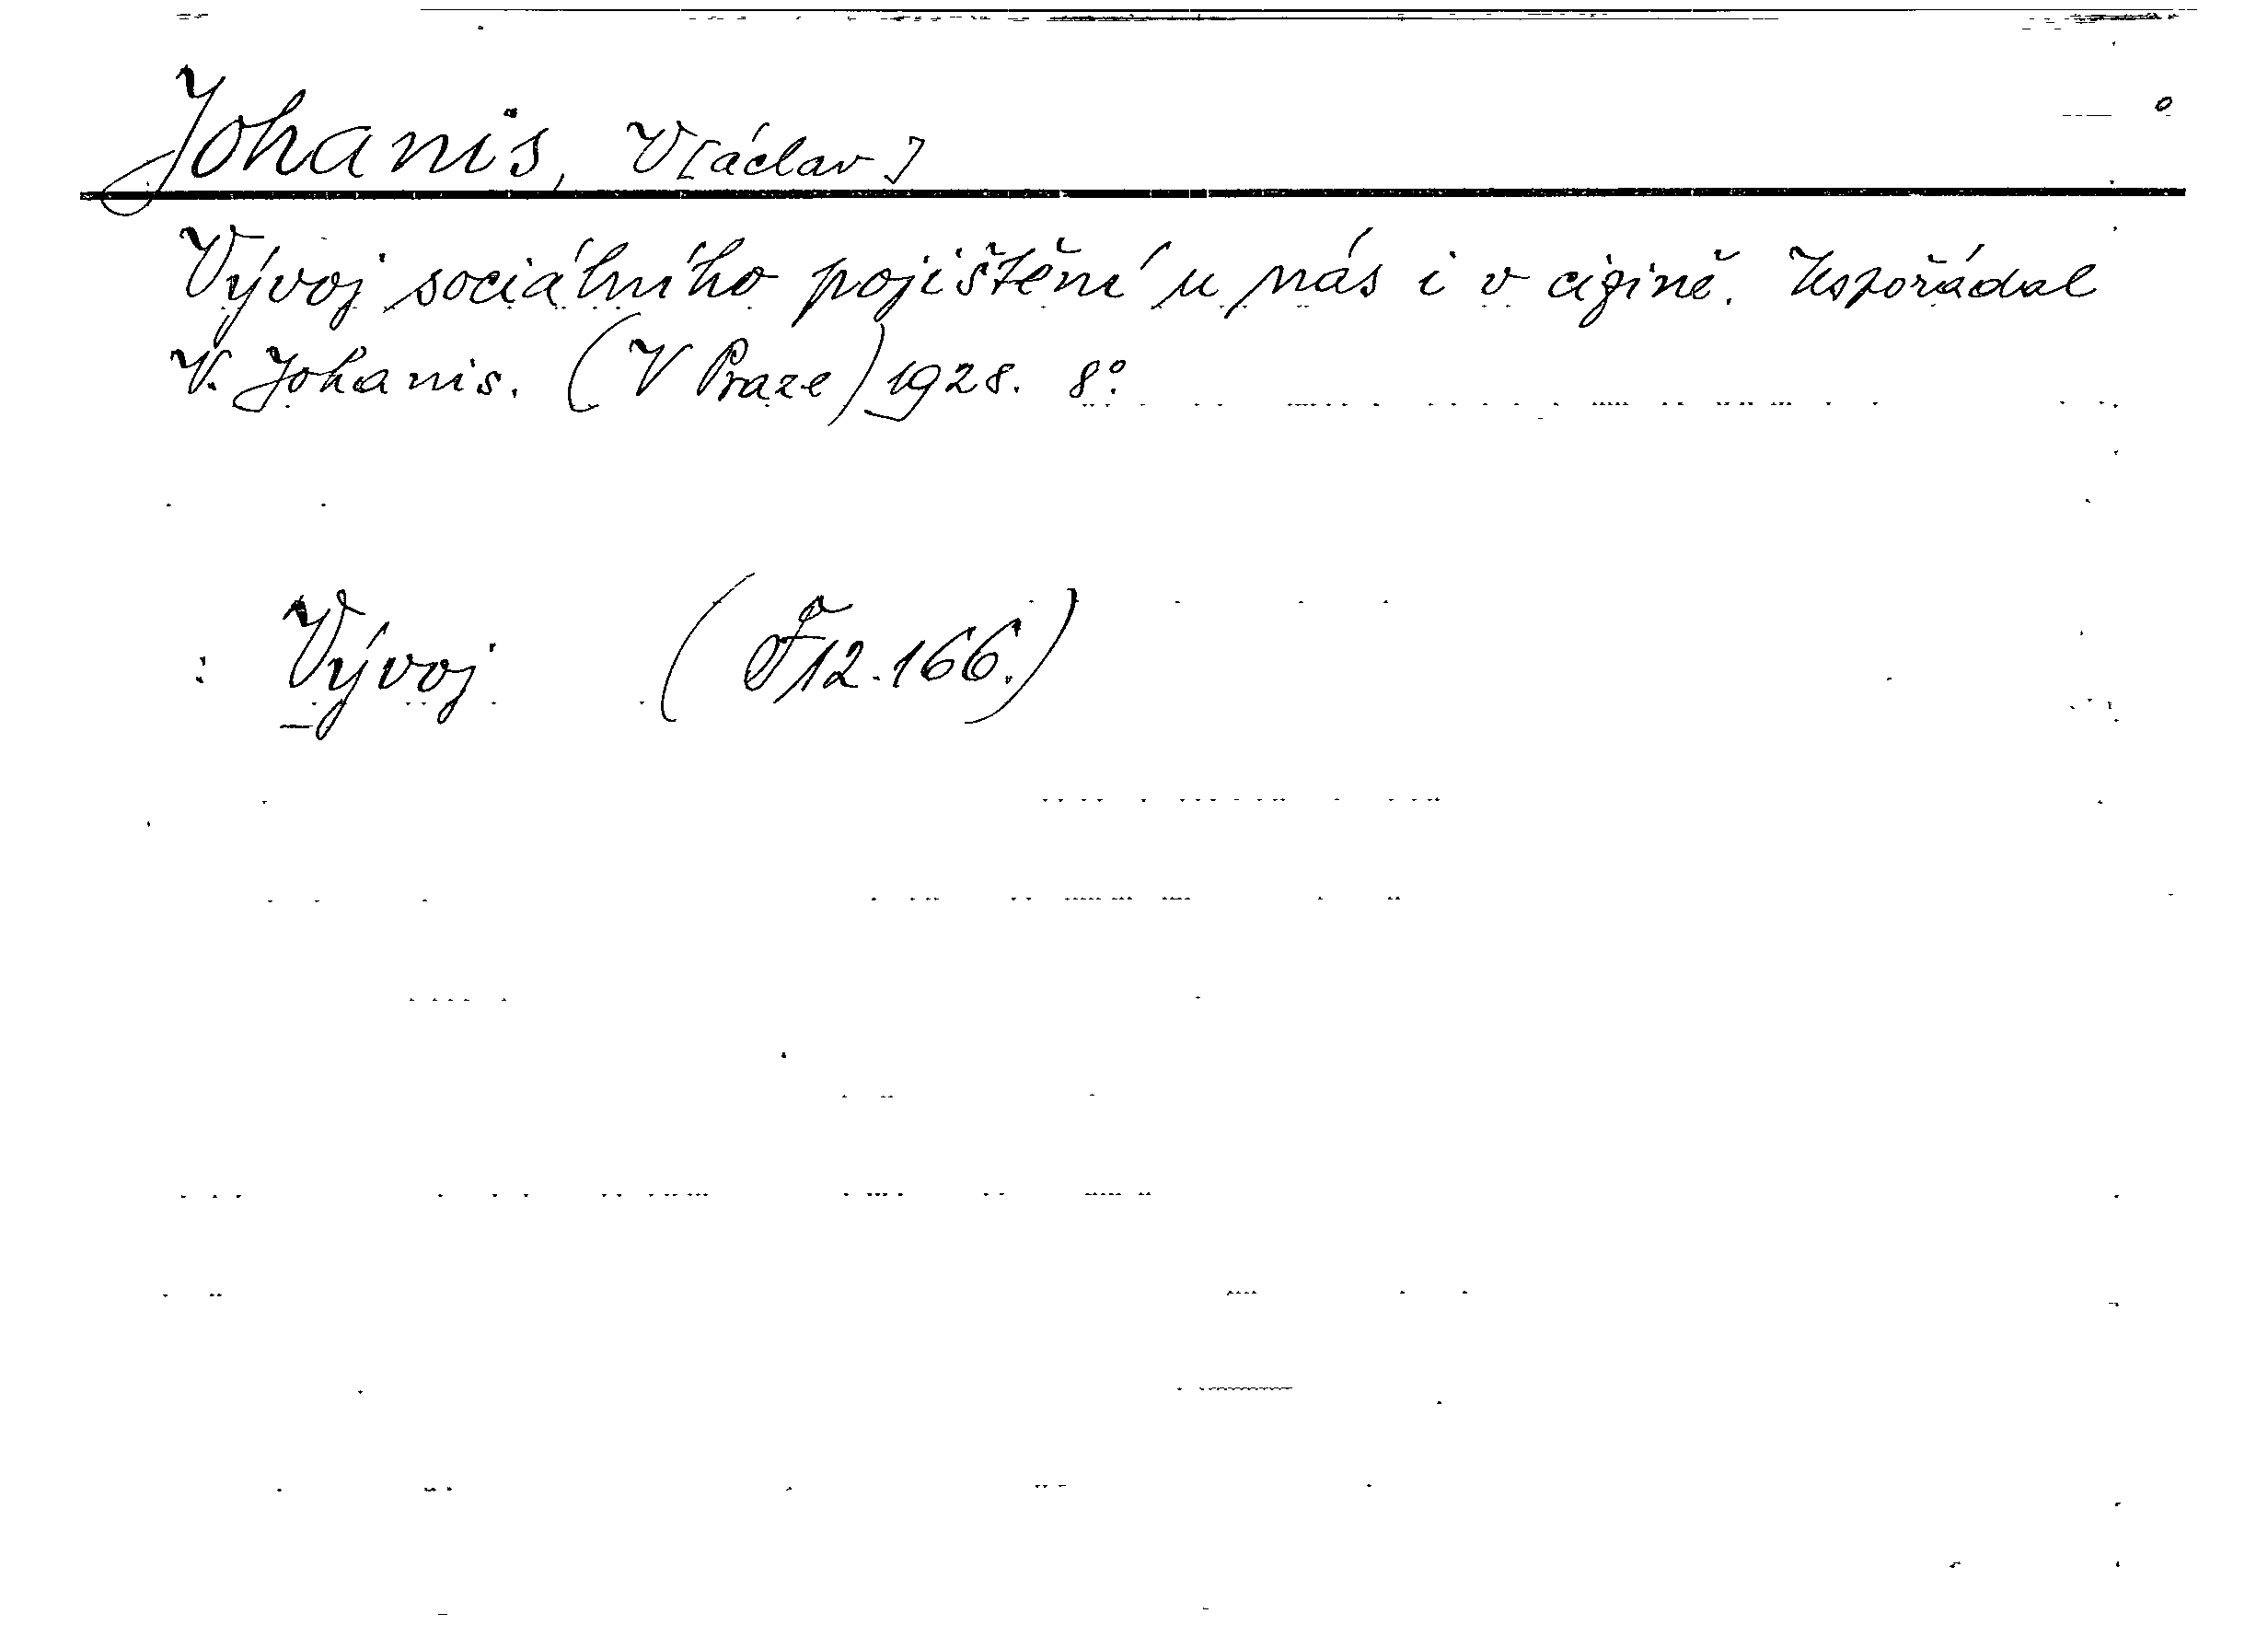 Johanis, V[áclav]
Vývoj sociálního pojištění u nás i v cizině. Uspořádal
V. Johanis. (V Praze) 1928. 8°.
: Vývoj (F12.166.)